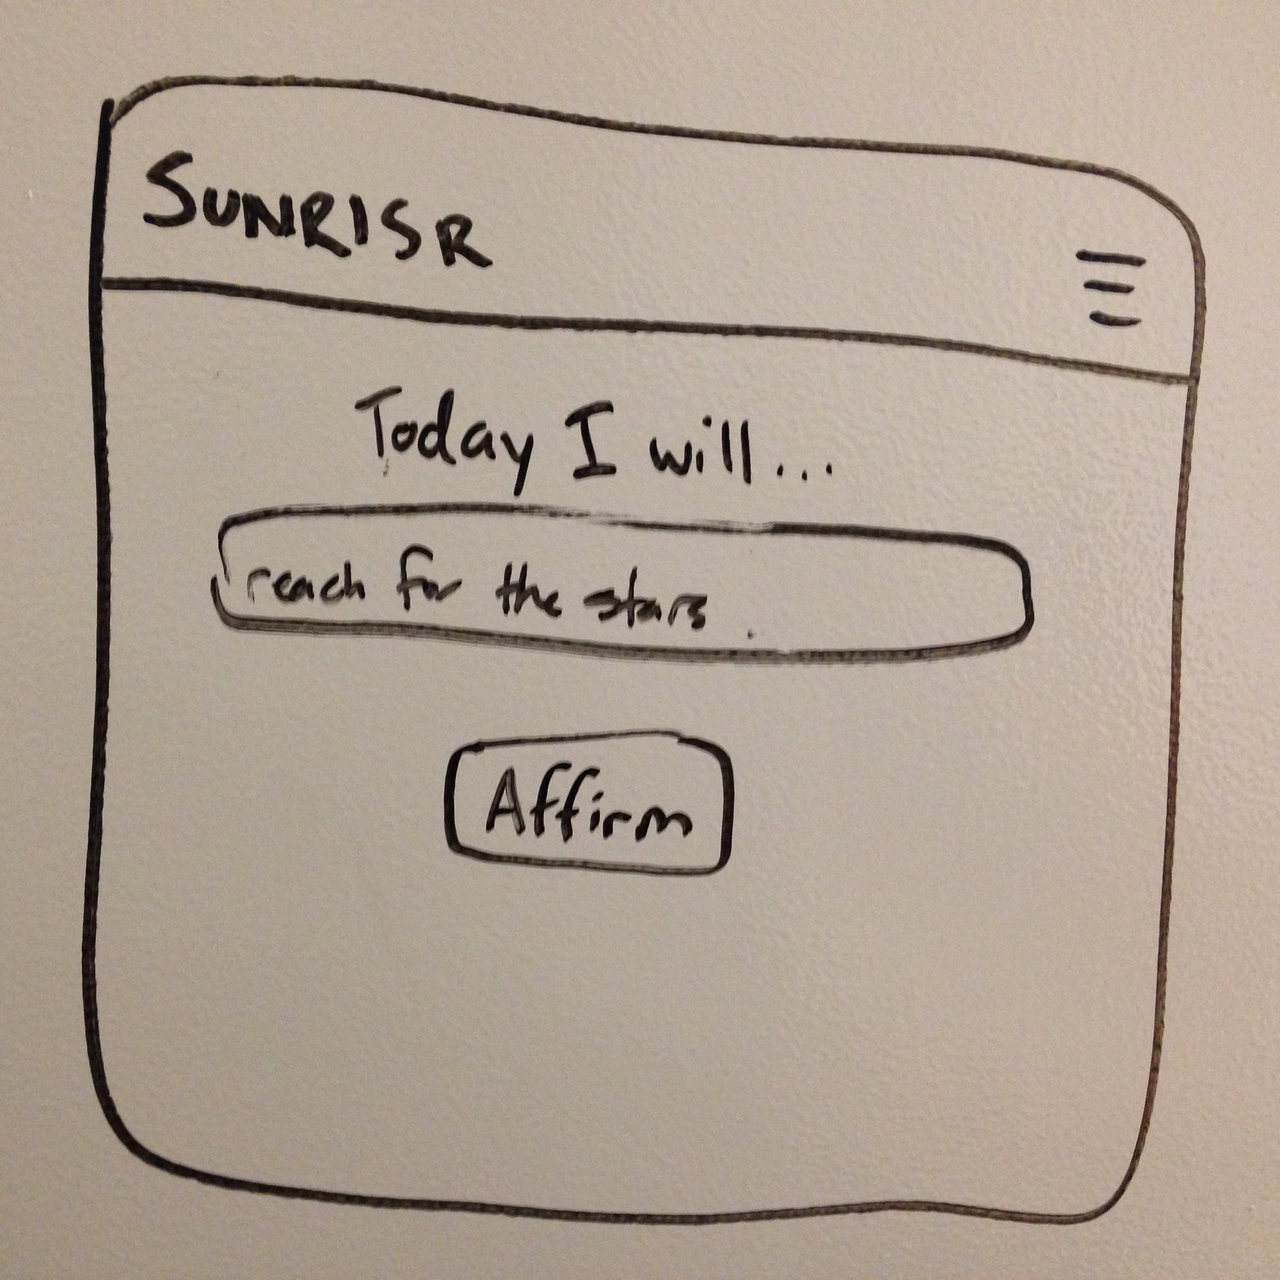 SUNRISR
Today I will...
reach for the stars.
Affirm